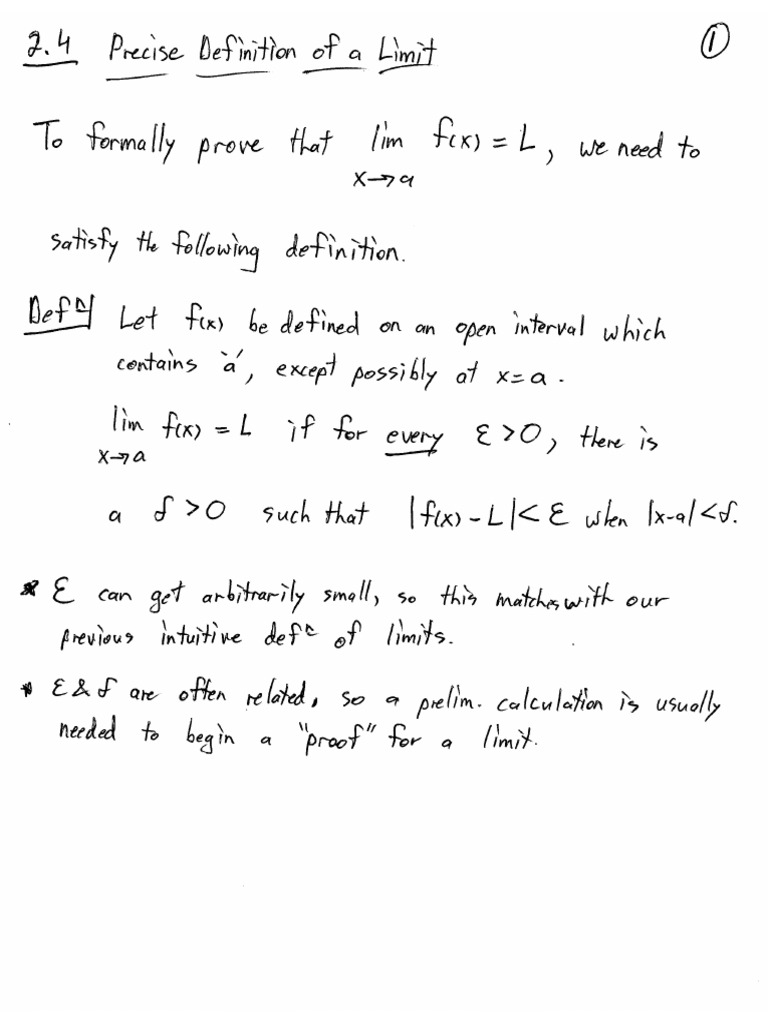 2.4 Precise Definition of a Limit ①
To formally prove that lim f(x) = L, we need to
x→a
satisfy the following definition.
Defⁿ Let f(x) be defined on an open interval which
contains 'a', except possibly at x=a.
lim f(x) = L if for every ε>0, there is
x→a
a δ>0 such that |f(x)-L|<ε when |x-a|<δ.
* ε can get arbitrarily small, so this matches with our
previous intuitive defⁿ of limits.
* ε & δ are often related, so a prelim. calculation is usually
needed to begin a "proof" for a limit.